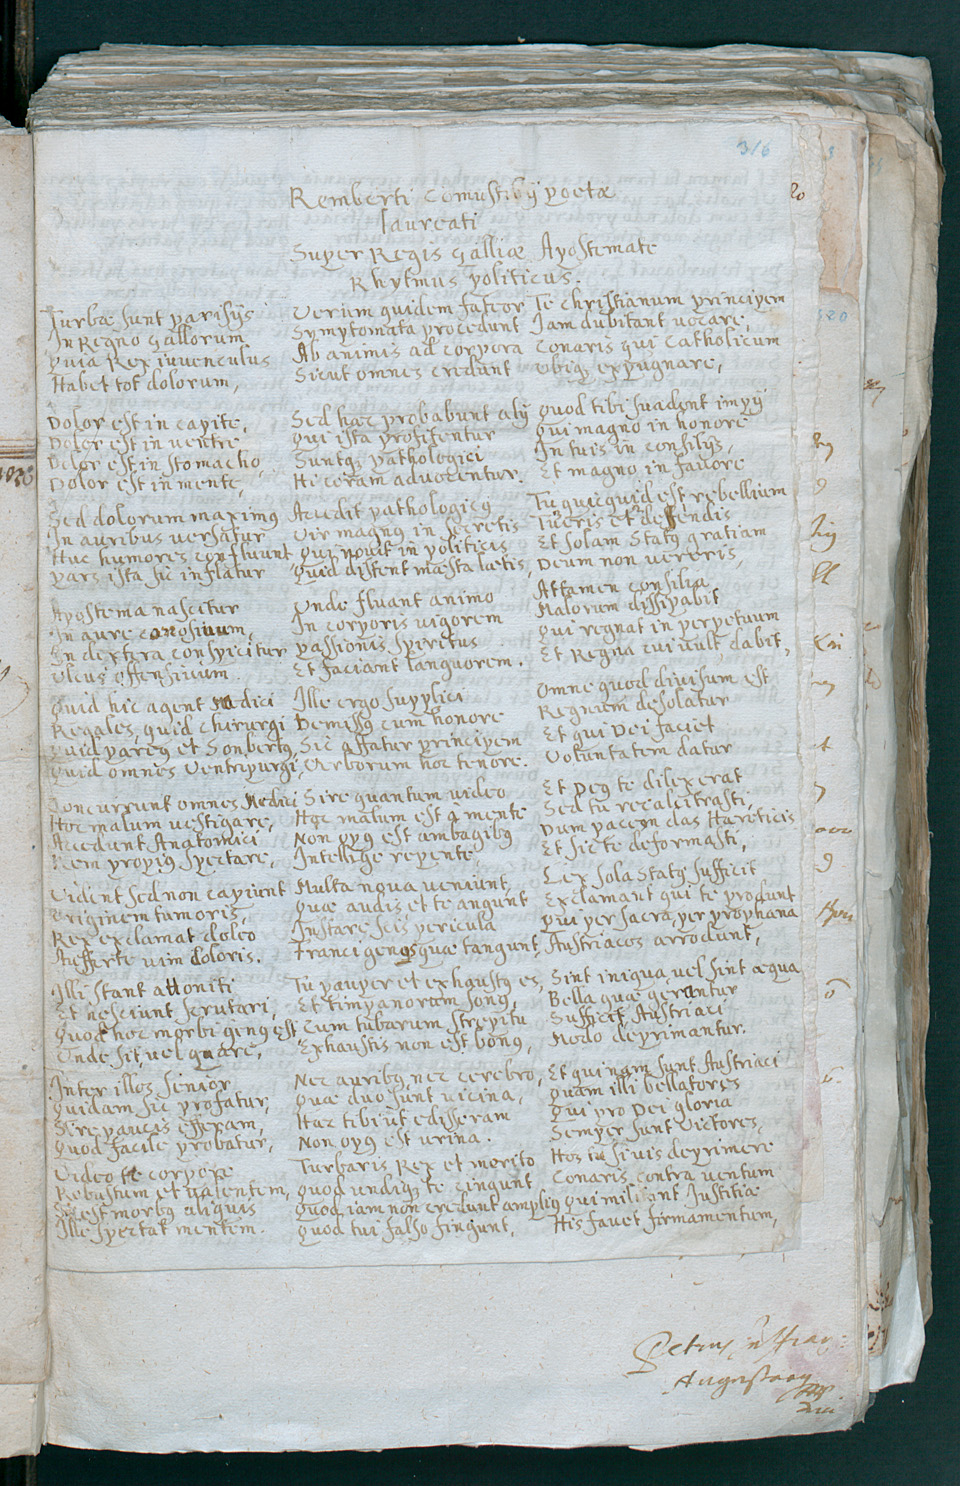 316
Remberti Comustibÿ poetæ
laureati
Super Regis Galliæ Apostemate
Rhytmus politicus.
Turbæ sunt parisÿs
In Regno Gallorum
Quia Rex iuvenculus
Habet tot dolorum,
Dolor est in capite,
Dolor est in ventre
Dolor est in stomacho
Dolor est in mente,
Sed dolorum maximꝰ
In auribus versatur
Huc humores confluunt
pars ista sic inflatur
Apostema nascitur
In aure
In dextera conspicitur
Ulcus offensivum.
Quid hic agent medici
Regales, quid Chirurgi
Quid pareꝰ et Sonbertꝰ,
Quid omnes Ventripurgi,
Concurrunt omnes Medici
Hoc malum vestigare,
Accedunt Anatomici
Rem propiꝰ spectare,
Vident sed non capiunt
Originem tumoris,
Rex exclamat doleo
Aufferte vim doloris.
Illi stant attoniti
Et nesciunt scrutari,
Quod hoc morbi genꝰ est
Unde sit, vel quare,
Inter illos senior
Quidam sic profatur,
Sire paucis efferam,
Quod facile probatur,
Video te corpore
Robustum et valentem,
Si est morbꝰ aliquis
Ille spectat mentem.
Verum quidem fateor
Symptomata procedunt
Ab animis ad corpora
Sicut omnes credunt
Sed hæc probabunt alÿ
Qui ista profitentur
Suntqꝫ pathologici
Hi ceram advocentur.
Accedit pathologicꝰ
Vir magnꝰ in secretis
Qui novit in politicis
Quid distent mæsta lætis,
Unde fluant animo
In corporis vigorem
passionis spiritus
Et faciant languorem.
Ille ergo supplici
Demissꝰ cum honore
Sic affatur principem
Verborum hoc tenore.
Sire quantum video
Hoc malum est à mente
Non opꝰ est ambagibꝰ
Intellige repente,
Multa nova veniunt,
Quæ audis et te angunt
Instare scis pericula
Francigenos quæ tangunt,
Tu pauper et exhaustꝰ es,
Et timpanorum sonꝰ,
Cum tubarum strepitu
Exhaustis non est bonꝰ,
Nec auribꝰ, nec cerebro,
Quæ duo sunt vicina,
Hæc tibi ut edisseram
Non opꝰ est urina.
Turbaris Rex et merito
Quod undiqꝫ te cingunt
Quod iam non credunt ampliꝰ
Quod tui falso fingunt,
Te Christianum principem
Iam dubitant vocare,
Conaris qui Catholicum
Ubiqꝫ expugnare,
Quod tibi suadent impÿ
Qui magno in honore
In tuis in consilÿs,
Et magno in favore
Tu quicquid est rebellium
Tueris et defendis
Et solam Statꝰ gratiam
Deum non vereris,
Attamen consilia
Malorum dissipabit
Qui regnat in perpetuum
Et Regna cui vult dabit,
Omne quod divisum est
Regnum desolatur
Et qui Dei faciet
Voluntatem datur
Et Deꝰ te dilexerat
Sed tu recalcitrasti,
Dum pacem das Hæreticis
Et sic te deformasti,
Lex sola Statꝰ sufficit
Exclamant qui te produnt
Qui per sacra, per prophana
Austriacos arrodunt,
Sint iniqua vel sint æqua
Bella quæ gerantur
Sufficit Austriaci
Modo deprimantur.
Et qui nam sunt Austriaci
Quam illi bellatores
Qui pro Dei gloria
Semper sunt Victores,
Hos tu si vis deprimere
Conaris contra ventum
Qui militant Justitiæ
His favet firmamentum,
Petrus